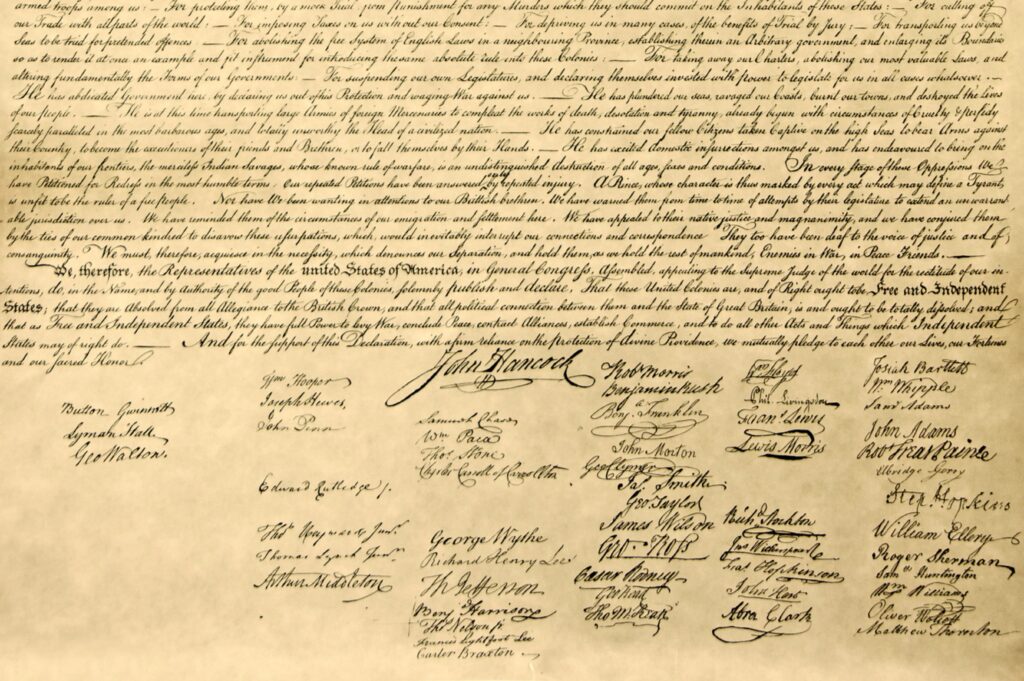 armed troops among us: — For protecting them, by a mock Trial, from punishment for any Murders which they should commit on the Inhabitants of these States: — For cutting off
our Trade with all parts of the world: — For imposing Taxes on us without our Consent: — For depriving us in many cases, of the benefits of Trial by Jury: — For transporting us beyond
Seas to be tried for pretended offences: — For abolishing the free System of English Laws in a neighbouring Province, establishing therein an Arbitrary government, and enlarging its Boundaries
so as to render it at once an example and fit instrument for introducing the same absolute rule into these Colonies: — For taking away our Charters, abolishing our most valuable Laws, and
altering fundamentally the Forms of our Governments: — For suspending our own Legislatures, and declaring themselves invested with power to legislate for us in all cases whatsoever. —
He has abdicated Government here, by declaring us out of his Protection and waging War against us. — He has plundered our seas, ravaged our Coasts, burnt our towns, and destroyed the lives
of our people. — He is at this time transporting large Armies of foreign Mercenaries to compleat the works of death, desolation and tyranny, already begun with circumstances of Cruelty & perfidy
scarcely paralleled in the most barbarous ages, and totally unworthy the Head of a civilized nation. — He has constrained our fellow Citizens taken Captive on the high Seas to bear Arms against
their Country, to become the executioners of their friends and Brethren, or to fall themselves by their Hands. — He has excited domestic insurrections amongst us, and has endeavoured to bring on the
inhabitants of our frontiers, the merciless Indian Savages, whose known rule of warfare, is an undistinguished destruction of all ages, sexes and conditions. In every stage of these Oppressions We
have Petitioned for Redress in the most humble terms: Our repeated Petitions have been answered only by repeated injury. A Prince, whose character is thus marked by every act which may define a Tyrant,
is unfit to be the ruler of a free people. Nor have We been wanting in attentions to our Brittish brethren. We have warned them from time to time of attempts by their legislature to extend an unwarrant-
able jurisdiction over us. We have reminded them of the circumstances of our emigration and settlement here. We have appealed to their native justice and magnanimity, and we have conjured them
by the ties of our common kindred to disavow these usurpations, which, would inevitably interrupt our connections and correspondence They too have been deaf to the voice of justice and of
consanguinity. We must, therefore, acquiesce in the necessity, which denounces our Separation, and hold them, as we hold the rest of mankind, Enemies in War, in Peace Friends. —
We, therefore, the Representatives of the united States of America, in General Congress, Assembled, appealing to the Supreme Judge of the world for the rectitude of our in-
tentions, do, in the Name, and by Authority of the good People of these Colonies, solemnly publish and declare, That these United Colonies are, and of Right ought to be Free and Independent
States; that they are Absolved from all Allegiance to the British Crown, and that all political connection between them and the State of Great Britain, is and ought to be totally dissolved; and
that as Free and Independent States, they have full Power to levy War, conclude Peace, contract Alliances, establish Commerce, and to do all other Acts and Things which Independent
States may of right do. — And for the support of this Declaration, with a firm reliance on the protection of divine Providence, we mutually pledge to each other our Lives, our Fortunes
and our sacred Honor.
John Hancock
Button Gwinnett
Lyman Hall
Geo Walton.
Wm Hooper
Joseph Hewes,
John Penn
Edward Rutledge /.
Thos Heyward Junr.
Thomas Lynch Junr.
Arthur Middleton
Samuel Chase
Wm Paca
Thos Stone
Charles Carroll of Carrollton
George Wythe
Richard Henry Lee
Th Jefferson
Benj Harrison
Thos Nelson jr
Francis Lightfoot Lee
Carter Braxton
Robt Morris
Benjamin Rush
Benj. Franklin
John Morton
Geo Clymer
Jas. Smith
Geo. Taylor
James Wilson
Geo. Ross
Caesar Rodney
Geo Read
Tho M:Kean
Wm Floyd
Phil. Livingston
Frans. Lewis
Lewis Morris
Richd. Stockton
Jno Witherspoon
Fras. Hopkinson
John Hart
Abra Clark
Josiah Bartlett
Wm Whipple
Saml Adams
John Adams
Robt Treat Paine
Elbridge Gerry
Step. Hopkins
William Ellery
Roger Sherman
Saml Huntington
Wm Williams
Oliver Wolcott
Matthew Thornton